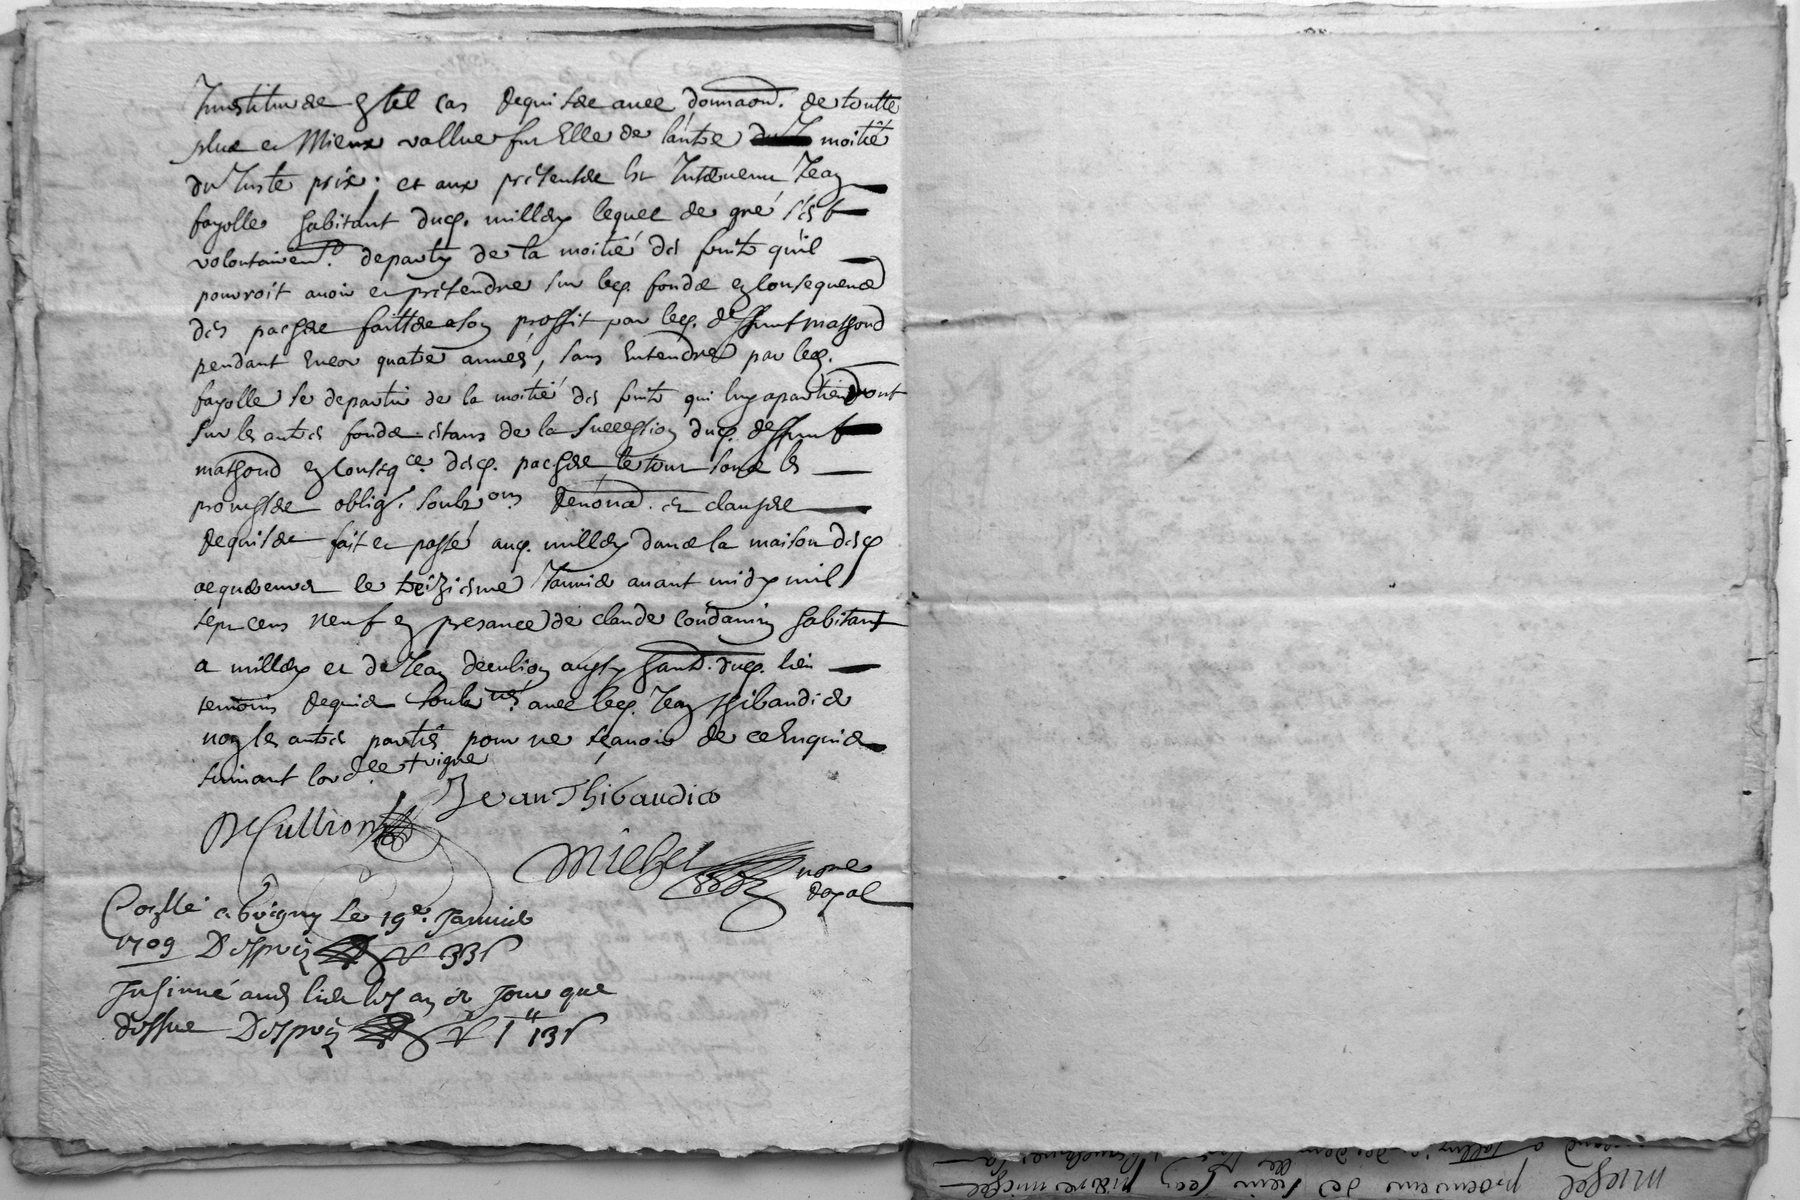 Investitude en tel cas requise avec donnaon. de toutte
plus et mieux vallue sur elle de lautre moitiet
du Juste prix; et aux presentes est Intervenu Jean
fayolle habitant dud. millery lequel de gré s'est
volontairemt. departy de la moitié des fruits qu'il
pourroit avoir et prétendre sur led. fonds en consequence
des paches faittes a son proffit par led. deffunt mathoud
pendant encor quatre années, sans entendre par led.
fayolle se departir de la moitié des fruits qui luy apartiendront
sur les autres fonds estans de la succession dud. deffunt
mathoud en conseqce. desd. paches, le tout sous les
promesses oblig. soubzons renona. et clauses
requises fait et passé aud. millery dans la maison desd
acquereurs le treiziesme Janvier avant midy mil
sept cens neuf en presance de claude condamin habitant
a millery et de Jean decullion aussy habt. dud. lieu
temoins requis soubznés avec led. Jean thibaudier
non les autres parties pour ne sçavoir de ce enquis
suivant lordce
Jean Thibaudier
DeCullion
Michel
nore
Royal
Conllé a brigny Le 19e. Janvier
1709 Despris 33s
Insinué aud lieu les an et Jour que
dessus Despris 1" 13s